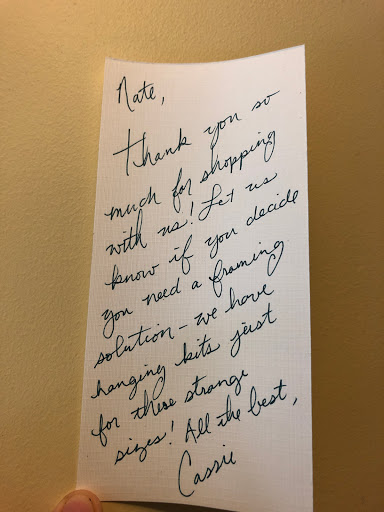 Nate,
Thank you so
much for shopping
with us! Let us
know if you decide
you need a framing
solution - we have
hanging kits just
for these strange
sizes! All the best,
Cassie